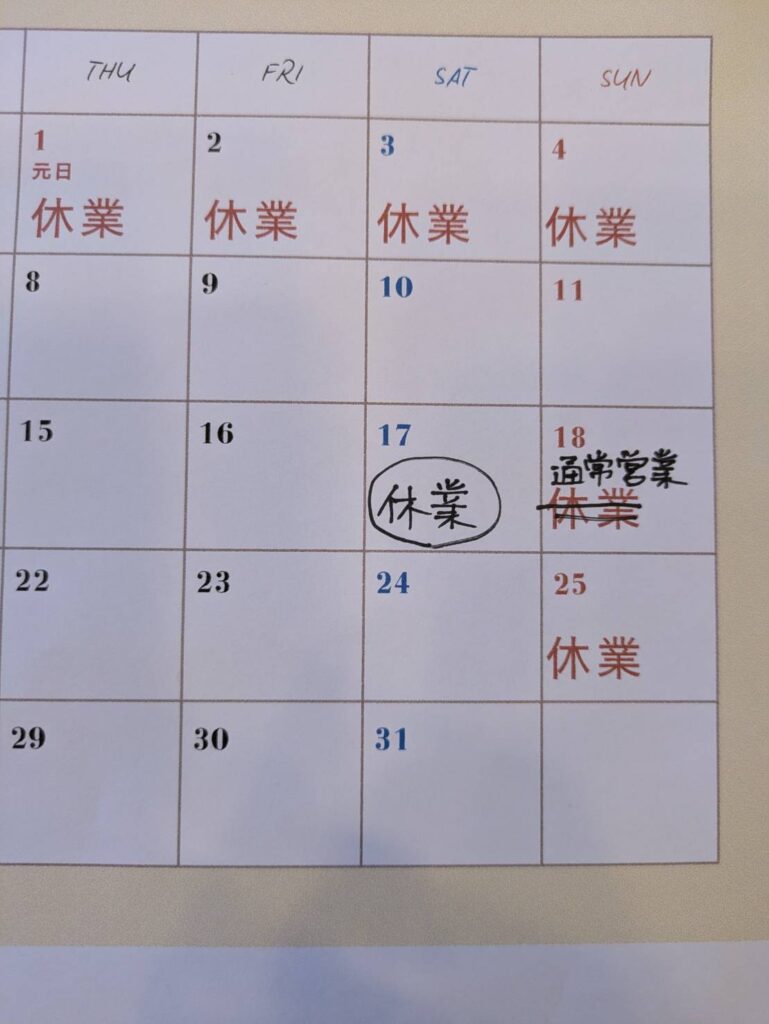 THU FRI SAT SUN
1 2 3 4
元日
休業 休業 休業 休業
8 9 10 11
15 16 17 18
通常営業
休業 休業
22 23 24 25
休業
29 30 31